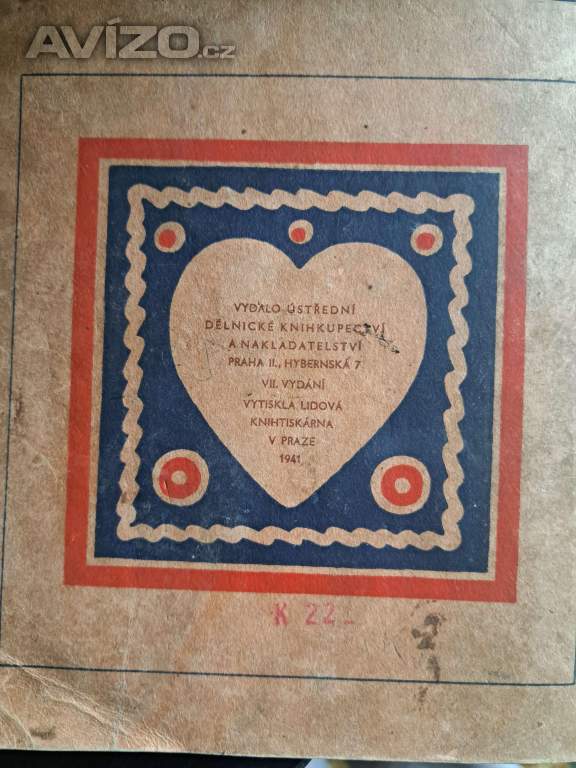 AVÍZO.cz
VYDALO ÚSTŘEDNÍ
DĚLNICKÉ KNIHKUPECTVÍ
A NAKLADATELSTVÍ
PRAHA II., HYBERNSKÁ 7
VII. VYDÁNÍ
VYTISKLA LIDOVÁ
KNIHTISKÁRNA
V PRAZE
1941
K 22_